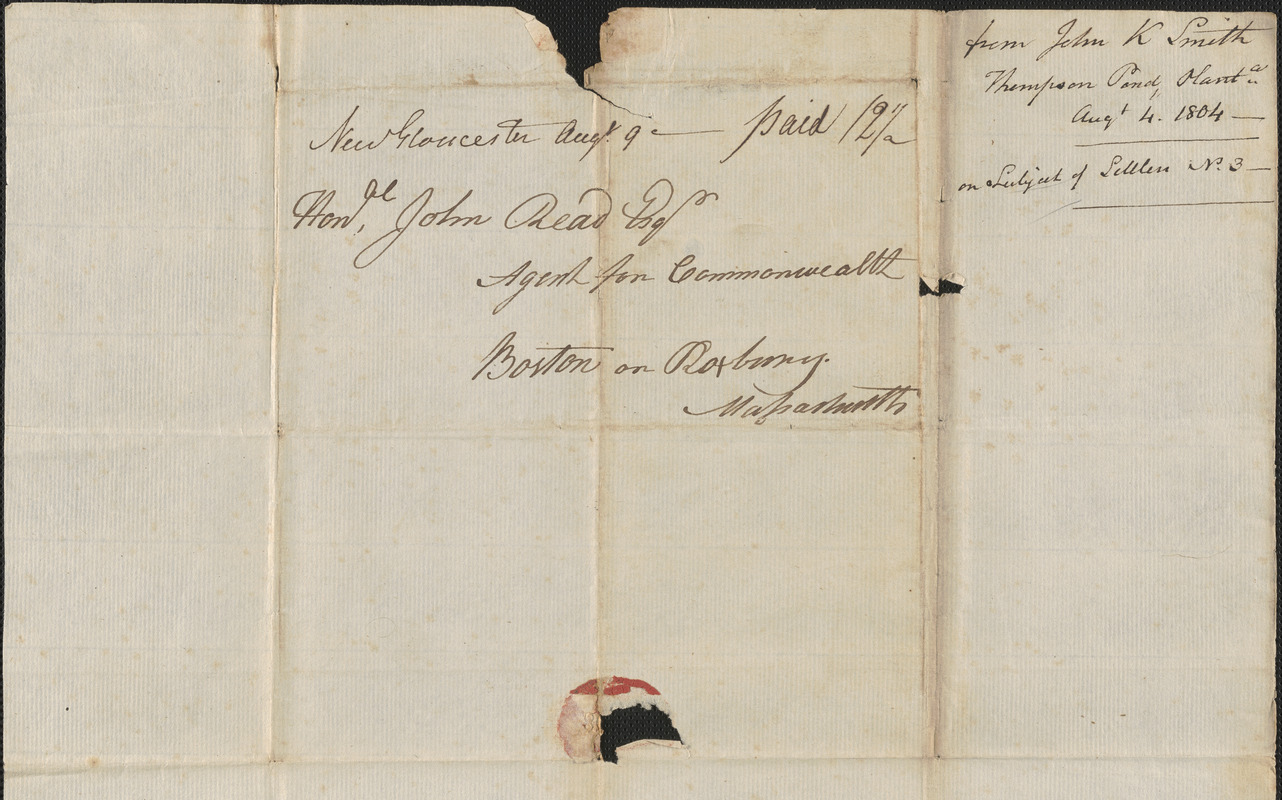 New Gloucester Augt. 9 — paid 12½
Honble. John Read Esqr
Agent for Commonwealth
Boston or Roxbury.
Massachusetts
from John K Smith
Thompson Pond, Planta
Augt 4. 1804 —
on Subject of Settlers No. 3 —